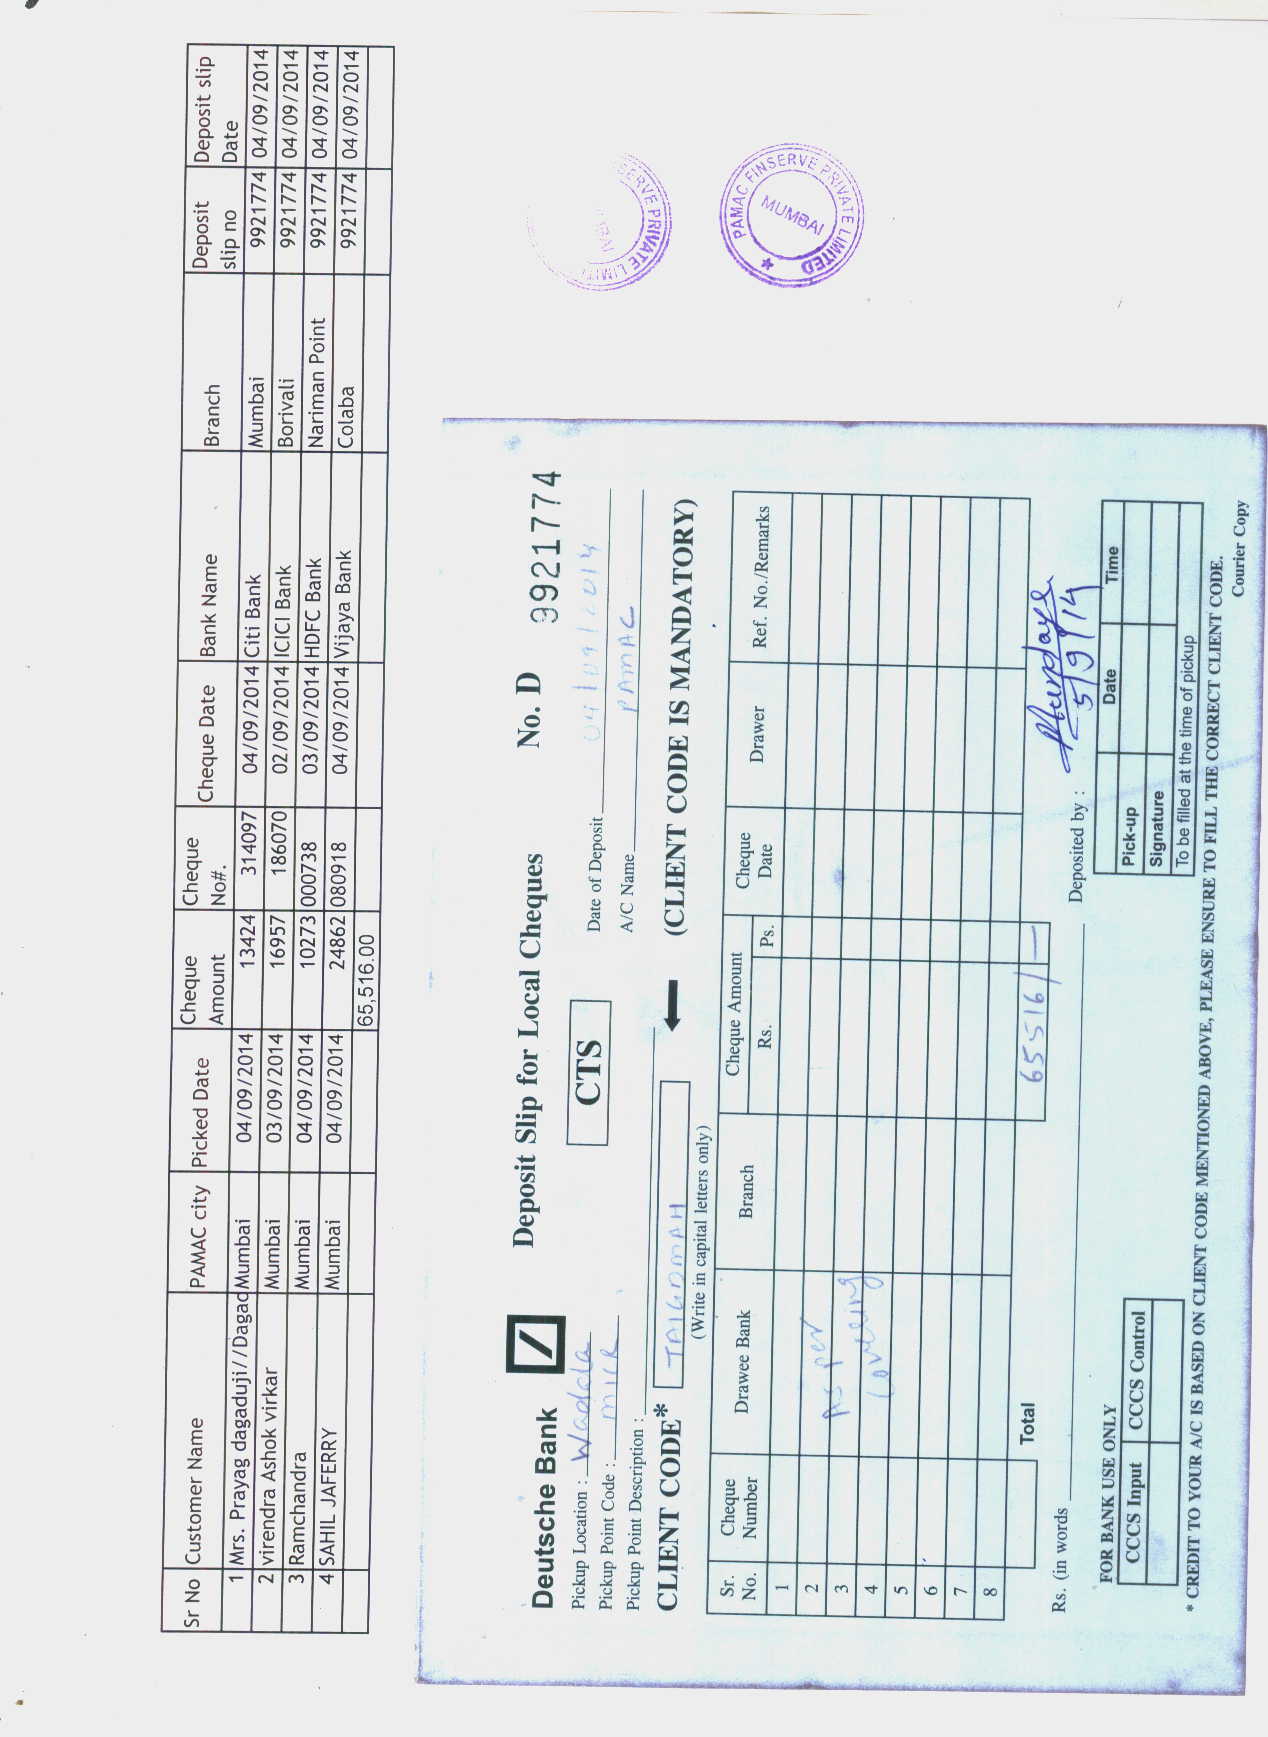 Sr No Customer Name PAMAC city Picked Date Cheque Amount Cheque No#. Cheque Date Bank Name Branch Deposit slip no Deposit slip Date
1 Mrs. Prayag dagaduji//Dagad Mumbai 04/09/2014 13424 314097 04/09/2014 Citi Bank Mumbai 9921774 04/09/2014
2 virendra Ashok virkar Mumbai 03/09/2014 16957 186070 02/09/2014 ICICI Bank Borivali 9921774 04/09/2014
3 Ramchandra Mumbai 04/09/2014 10273 000738 03/09/2014 HDFC Bank Nariman Point 9921774 04/09/2014
4 SAHIL JAFERRY Mumbai 04/09/2014 24862 080918 04/09/2014 Vijaya Bank Colaba 9921774 04/09/2014
65,516.00
SERVE PRIVATE LIMIT
PAMAC FINSERVE PRIVATE LIMITED
MUMBAI
Deutsche Bank Deposit Slip for Local Cheques No. D 9921774
Pickup Location : Wadala CTS Date of Deposit 04/09/2014
Pickup Point Code : MICR A/C Name PAMAC
Pickup Point Description :
CLIENT CODE* (CLIENT CODE IS MANDATORY)
(Write in capital letters only)
Sr. No. Cheque Number Drawee Bank Branch Cheque Amount Rs. Ps. Cheque Date Drawer Ref. No./Remarks
1
2 As per
3
4 Covering
5
6
7
8
Total 65516/-
Rs. (in words Deposited by :
5/9/14
FOR BANK USE ONLY
CCCS Input CCCS Control
Date Time
Pick-up
Signature
To be filled at the time of pickup
* CREDIT TO YOUR A/C IS BASED ON CLIENT CODE MENTIONED ABOVE, PLEASE ENSURE TO FILL THE CORRECT CLIENT CODE.
Courier Copy